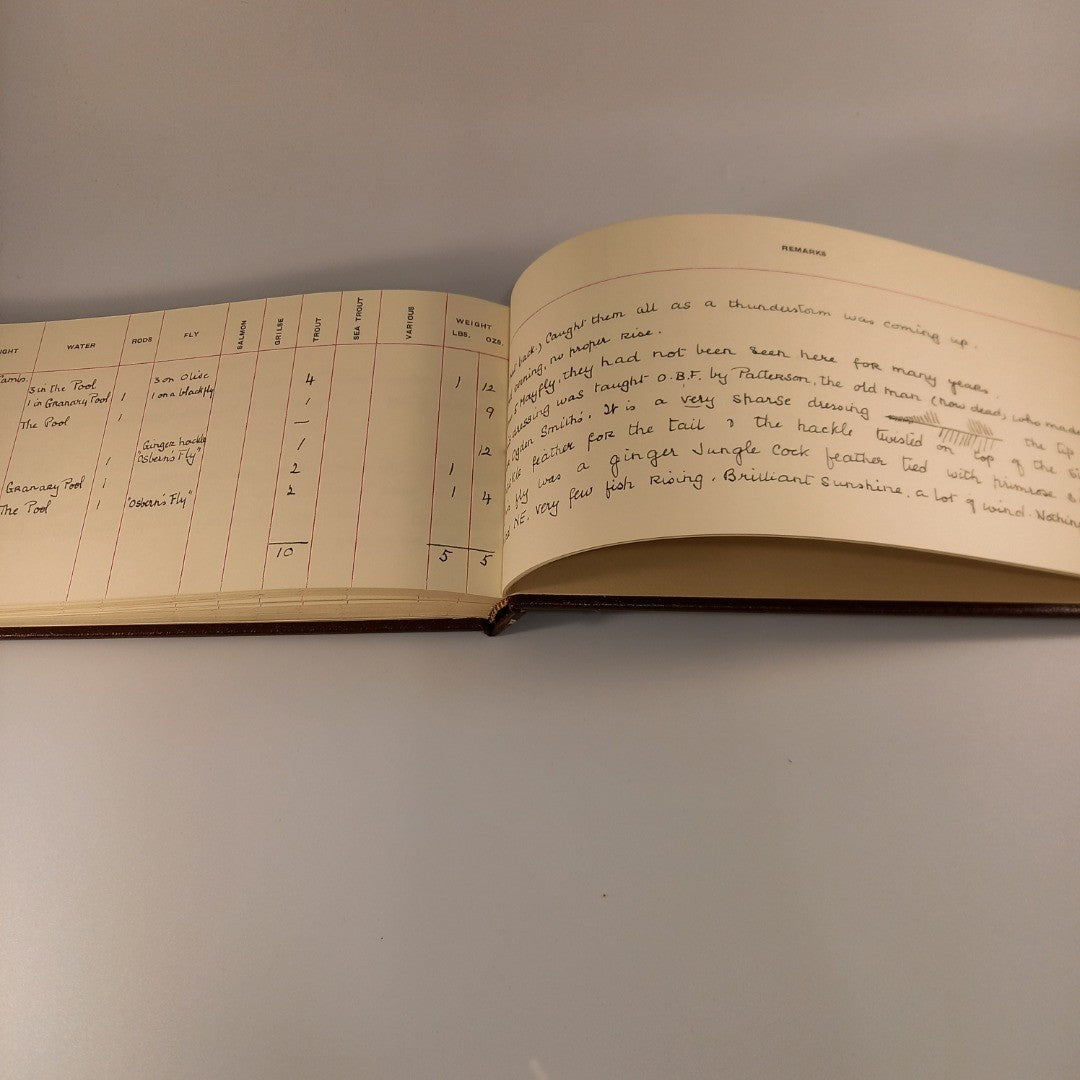 WATER RODS FLY SALMON GRILSE TROUT SEA TROUT VARIOUS WEIGHT
LBS. OZS.
3 in the Pool 3 on Olive 4 1 12
1 in Granary Pool 1 1 on a black fly
The Pool 1 1 9
—
Ginger hackle 1 12
1 "Osbern's Fly"
Granary Pool 1 2 1
The Pool 1 "Osbern's Fly" 2 1 4
10 5 5
REMARKS
back.) Caught them all as a thunderstorm was coming up.
evening, no proper rise.
Mayfly, they had not been seen here for many years.
dressing was taught O.B.F. by Patterson, the old man (now dead) who made
Ogden Smiths'. It is a very sparse dressing the tip
feather for the tail & the hackle twisted on top of the
fly was a ginger Jungle Cock feather tied with primrose
NE, very few fish rising. Brilliant Sunshine, a lot of wind. Nothing